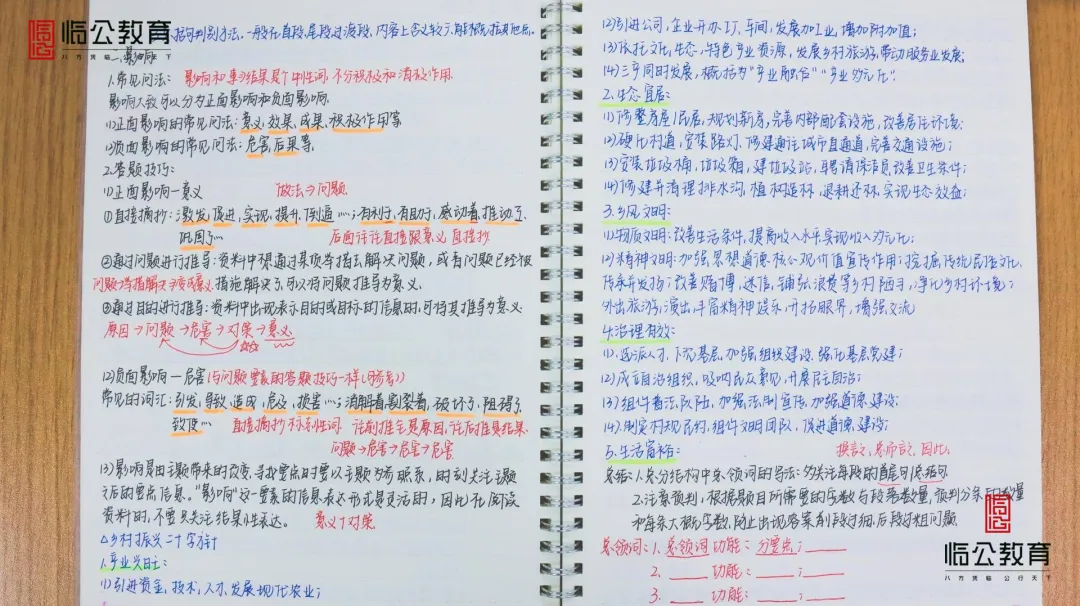 临公教育
八方凭临 公行天下
括句判别方法，一般在首段、尾段、过渡段，内容上含义较广，能够概括其他点。
二、影响
1.常见问法：影响和事物结果是个中性词，不分积极和消极作用
影响大致可以分为正面影响和负面影响.
(1)正面影响的常见问法：意义、效果、成果、积极作用等
(2)负面影响的常见问法：危害、后果等.
2.答题技巧：
(1)正面影响—意义 做法→问题
①直接摘抄：激发、促进、实现、提升、倒逼……；有利于、有助于、感动着、推动了、
巩固了… 后面往往直接跟意义，直接抄
②通过问题进行推导：资料中想通过某项举措去解决问题，或者问题已经被
措施解决了，可以将问题推导为意义.
③通过目的进行推导：资料中出现表示目的或目标的信息时，可将其推导为意义.
原因→问题→危害→对策→意义
(2)负面影响—危害(与问题要素的答题技巧一样
常见的词汇：引发、导致、造成、危及、损害……；消磨着、割裂着、破坏了、阻碍了、
致使… 直接摘抄标志性词 往前推是原因，往后推是结果.
问题→危害→危害→危害
(3)影响是由主题带来的改变，寻找要点时要以主题为联系，时刻关注主题
之后的要点信息。"影响"这一要素的信息表达形式是灵活的，因此在阅读
资料时，不要只关注结果性表达。 意义↑对策
△乡村振兴二十字方针
1.产业兴旺：
(1)引进资金，技术，人才，发展现代农业；
(2)引进公司，企业开办工厂、车间，发展加工业，增加附加值；
(3)依托文化，生态，特色产业资源，发展乡村旅游，带动服务业发展；
(4)三产同时发展，概括为"产业融合""产业多元化".
2.生态宜居：
(1)修整房屋/民居，规划新房，完善内部配套设施，改善居住环境；
(2)硬化村道，安装路灯，修建通往城市直通道，完善交通设施；
(3)安装垃圾桶，垃圾箱，建垃圾站，聘请保洁员，改善卫生条件；
(4)修建并清理排水沟，植树造林，退耕还林，实现生态效益；
3.乡风文明：
(1)物质文明：改善生活条件，提高收入水平，实现收入多元化；
(2)精神文明：加强思想道德核心价值宣传作用；挖掘传统民俗文化，
传承并发扬；改善赌博，迷信，铺张浪费等乡村陋习，净化乡村环境；
外出旅游，演出，丰富精神娱乐，开拓眼界，增强交流
4.治理有效：
(1)选派人才，下沉基层，加强组织建设，强化基层党建；
(2)成立自治组织，吸纳民众意见，开展民主自治；
(3)组件普法队伍，加强法制宣传，加强道德建设；
(4)制定村规民约，组件文明团队，促进道德建设；
5.生活富裕： 换言之，总而言之，因此，
总结：1.总分结构中总领词的写法：多关注每段的首尾句/总括句
2.注意预判，根据题目所需要的字数与段落数量，预判分条的数量
和每条大概字数，防止出现答案前段过细，后段过粗问题.
总领词：1.总领词 功能：分要点；
2. 功能： ；
3. 功能： ；
临公教育
八方凭临 公行天下